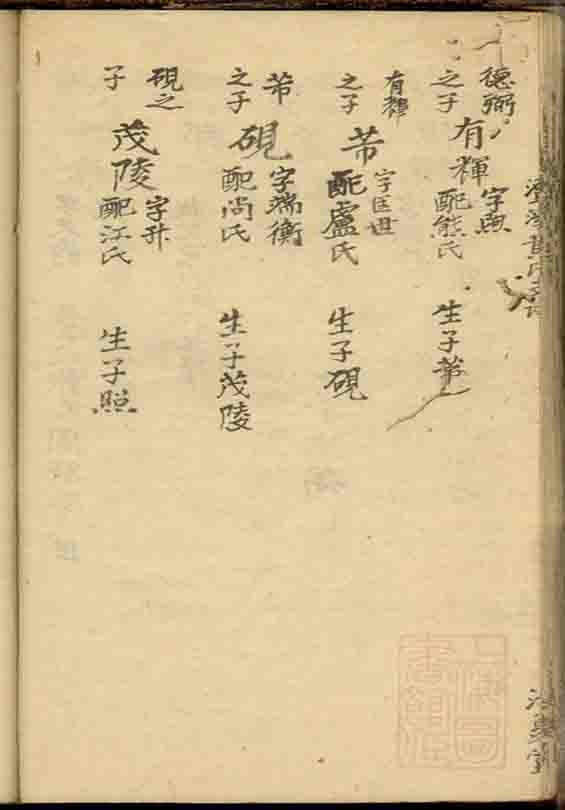 德弼
之子
有輝
字興
配熊氏
生子芾
有輝
之子
芾
字匡世
配盧氏
生子硯
芾
之子
硯
字端衡
配尚氏
生子茂陵
硯之
子
茂陵
字升
配江氏
生子照